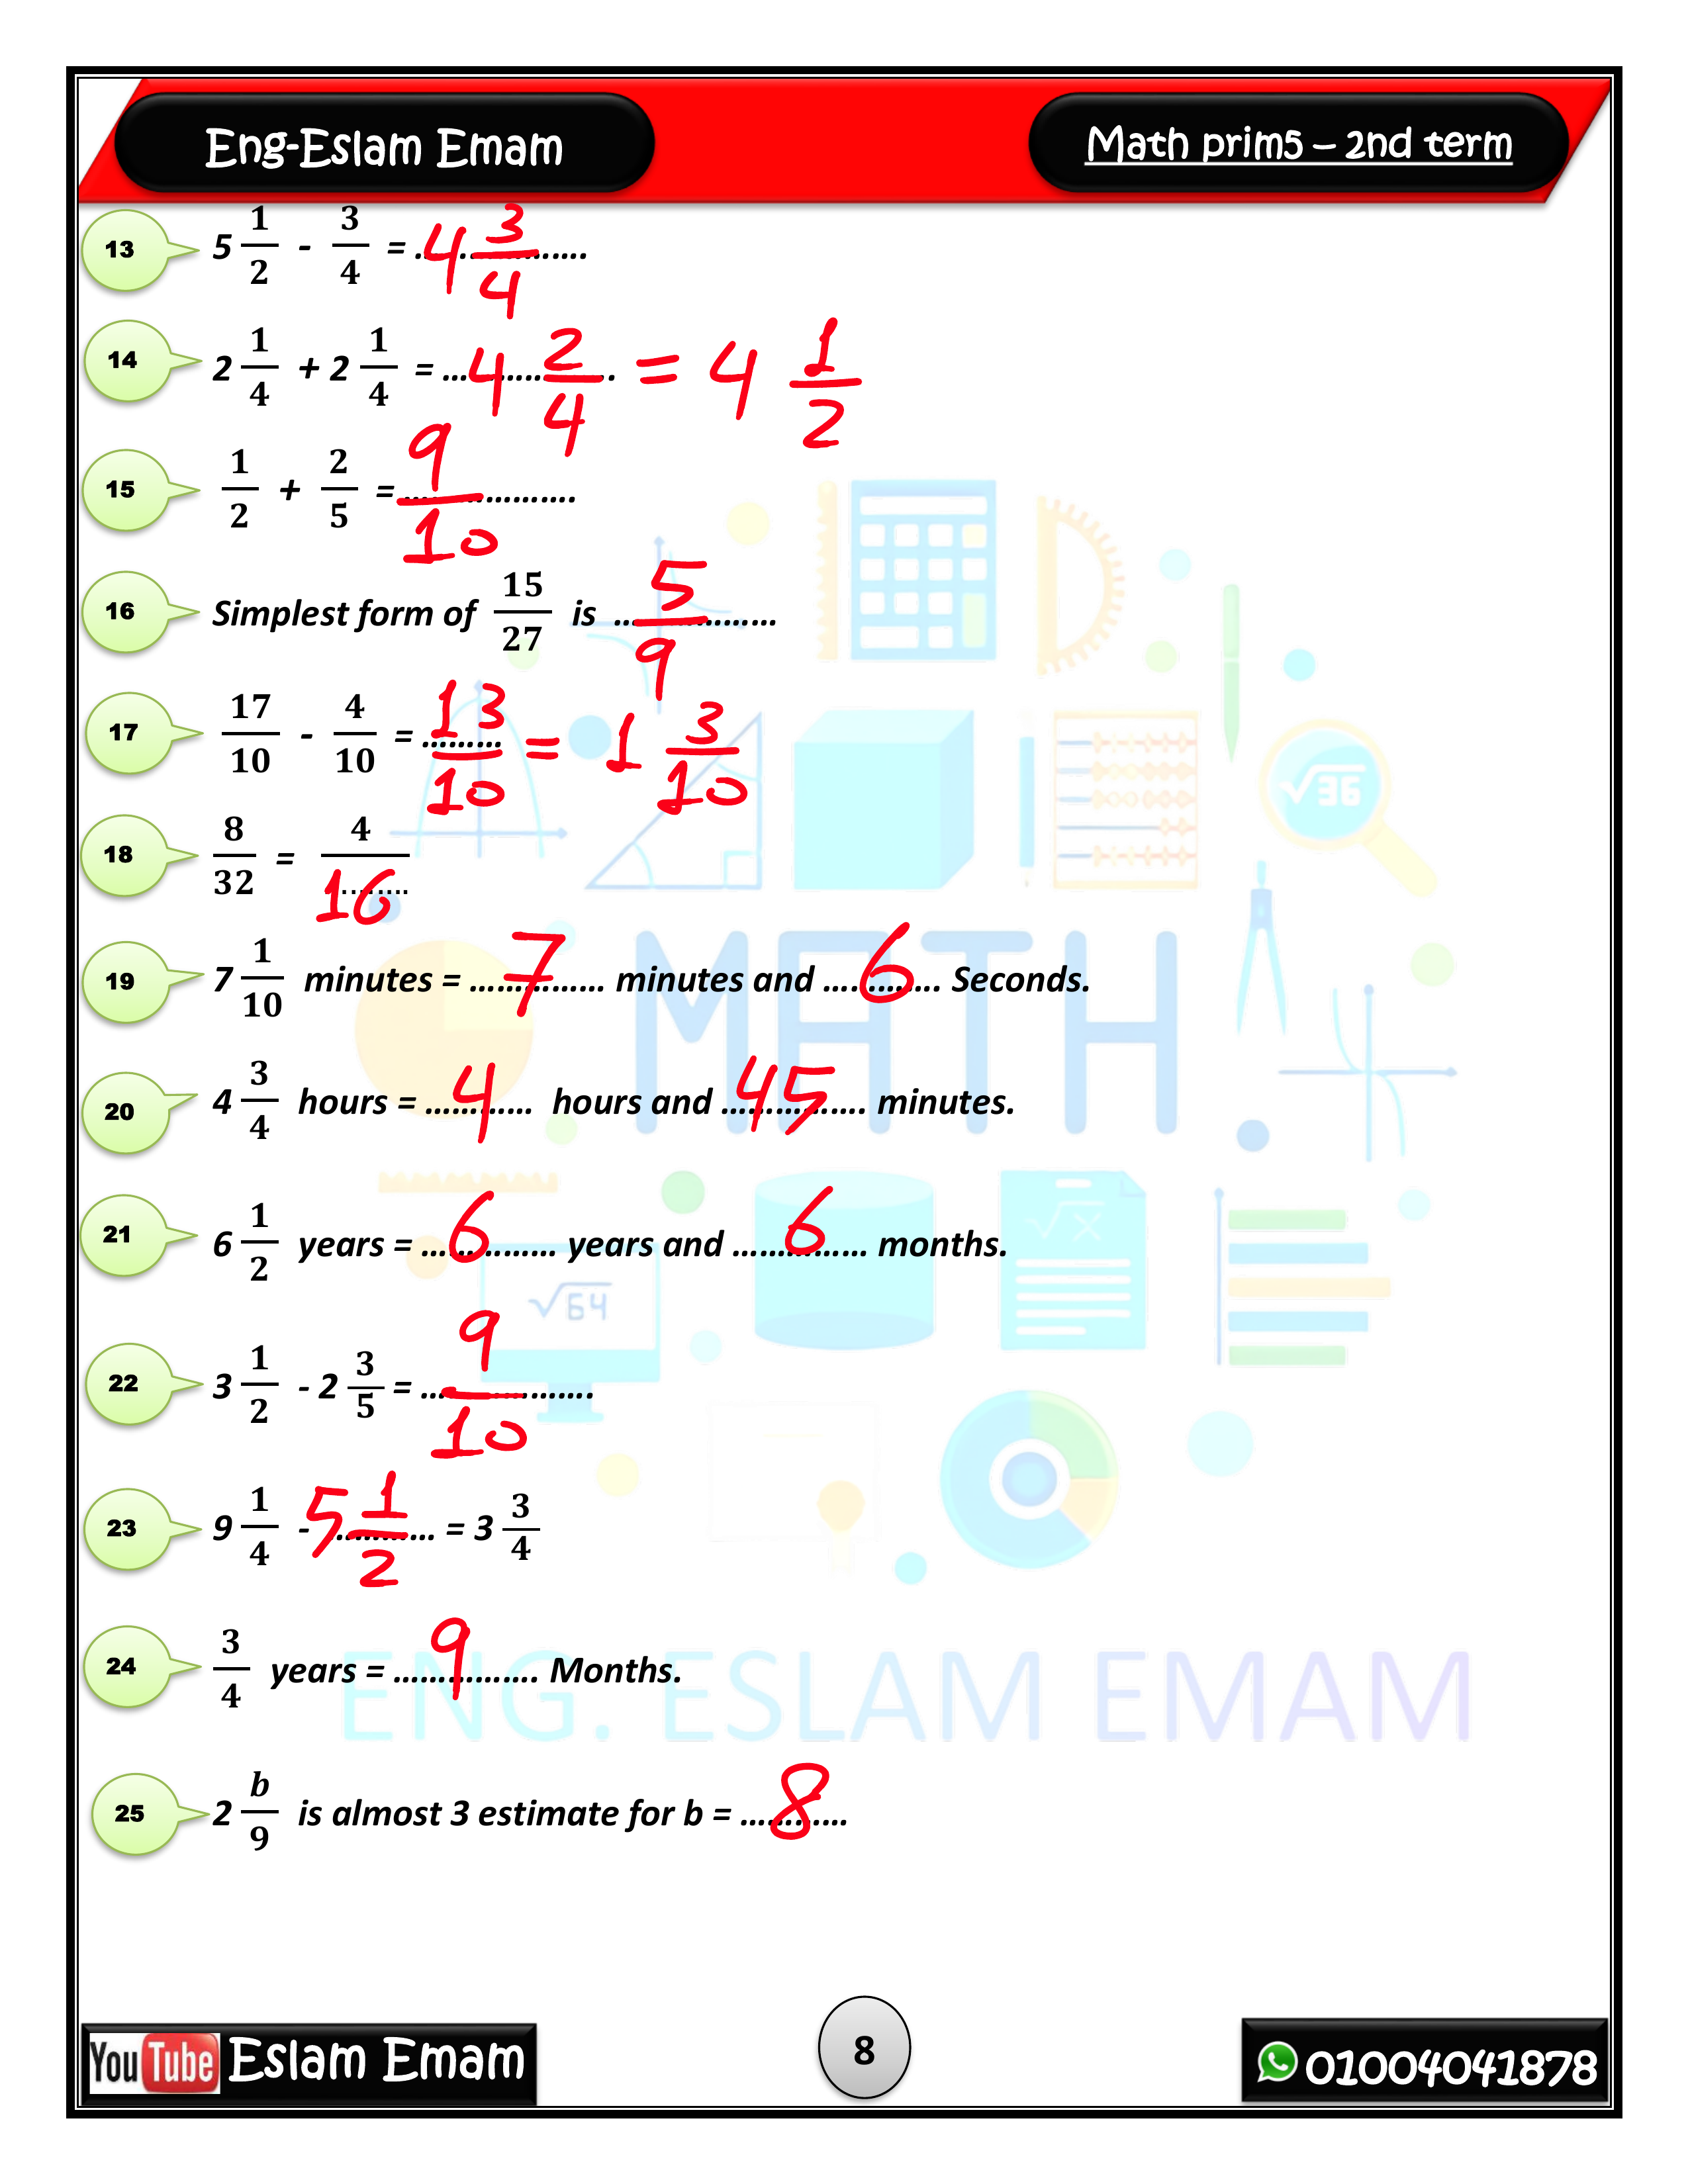 Eng-Eslam Emam
Math prim5 – 2nd term
13 5 1/2 - 3/4 = .................... 4 3/4
14 2 1/4 + 2 1/4 = .................... 4 2/4 = 4 1/2
15 1/2 + 2/5 = .................... 9/10
16 Simplest form of 15/27 is .................... 5/9
17 17/10 - 4/10 = ......... 13/10 = 1 3/10
18 8/32 = 4/16
19 7 1/10 minutes = 7 minutes and 6 Seconds.
20 4 3/4 hours = 4 hours and 45 minutes.
21 6 1/2 years = 6 years and 6 months.
22 3 1/2 - 2 3/5 = 9/10
23 9 1/4 - 5 1/2 = 3 3/4
24 3/4 years = 9 Months.
25 2 b/9 is almost 3 estimate for b = 8
√36
MATH
√x
√64
ENG. ESLAM EMAM
YouTube Eslam Emam
8
01004041878